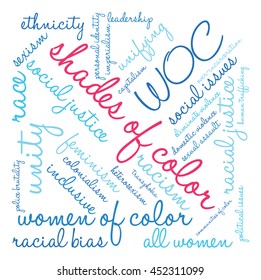 ethnicity
leadership
personal identity
imperialism
unifying
sexism
race
social justice
shades of color
capitalism
WOC
social issues
domestic violence
sexual assault
domestic violence
racial justice
human trafficking
unity
feminism
racism
colonialism
heterosexism
inclusive
police brutality
political issues
communities of color
women of color
racial bias
all women
452311099